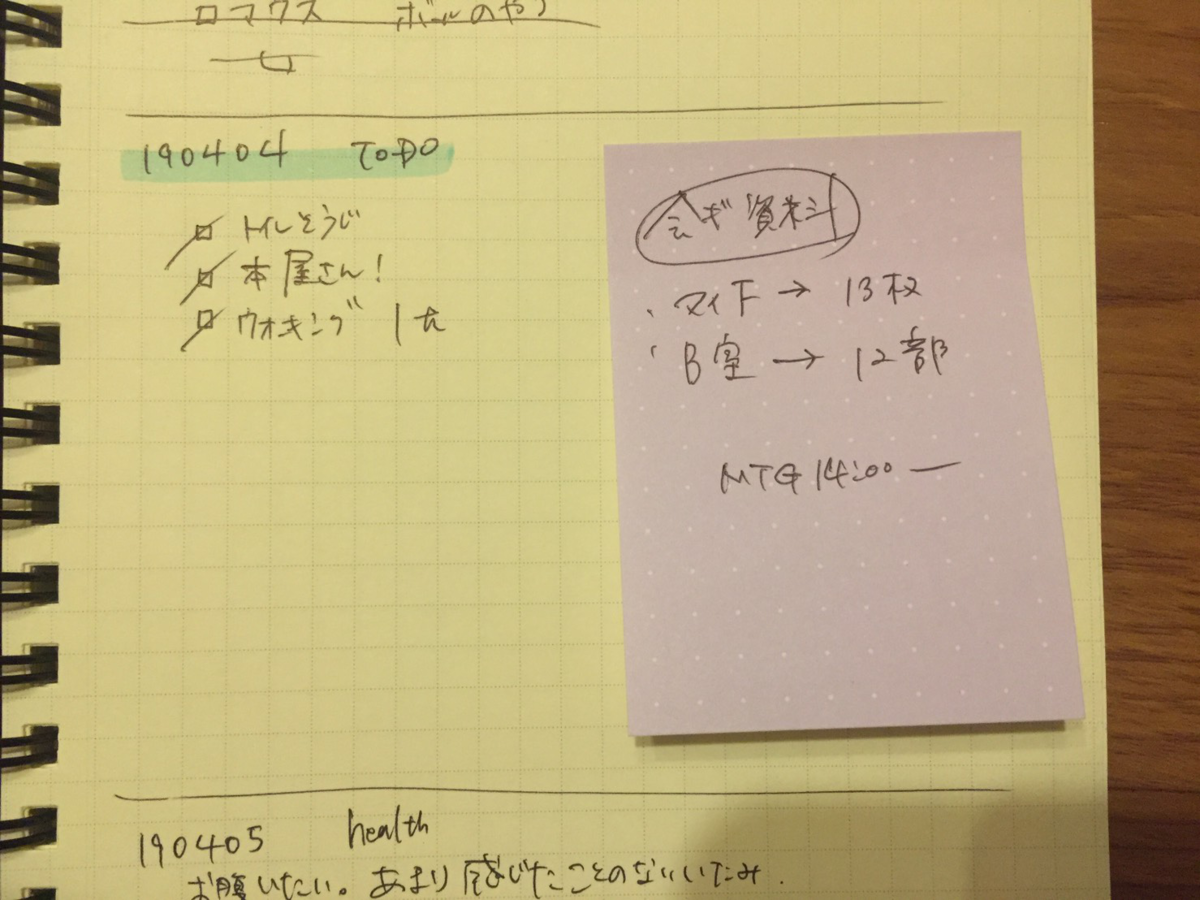 ロマウス ボールのやつ
190404 TODO
トイレそうじ
本屋さん!
ウオキング 1h
会ギ資料
・マイ下 → 13枚
・B室 → 12部
MTG 14:00 ―
190405 health
お腹いたい。あまり感じたことのないいたみ.